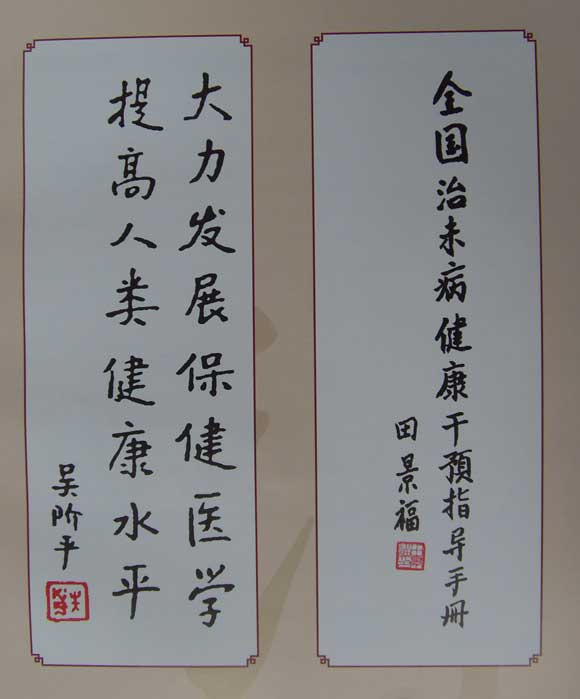 全国治未病健康干预指导手册
田景福
大力发展保健医学
提高人类健康水平
吴阶平